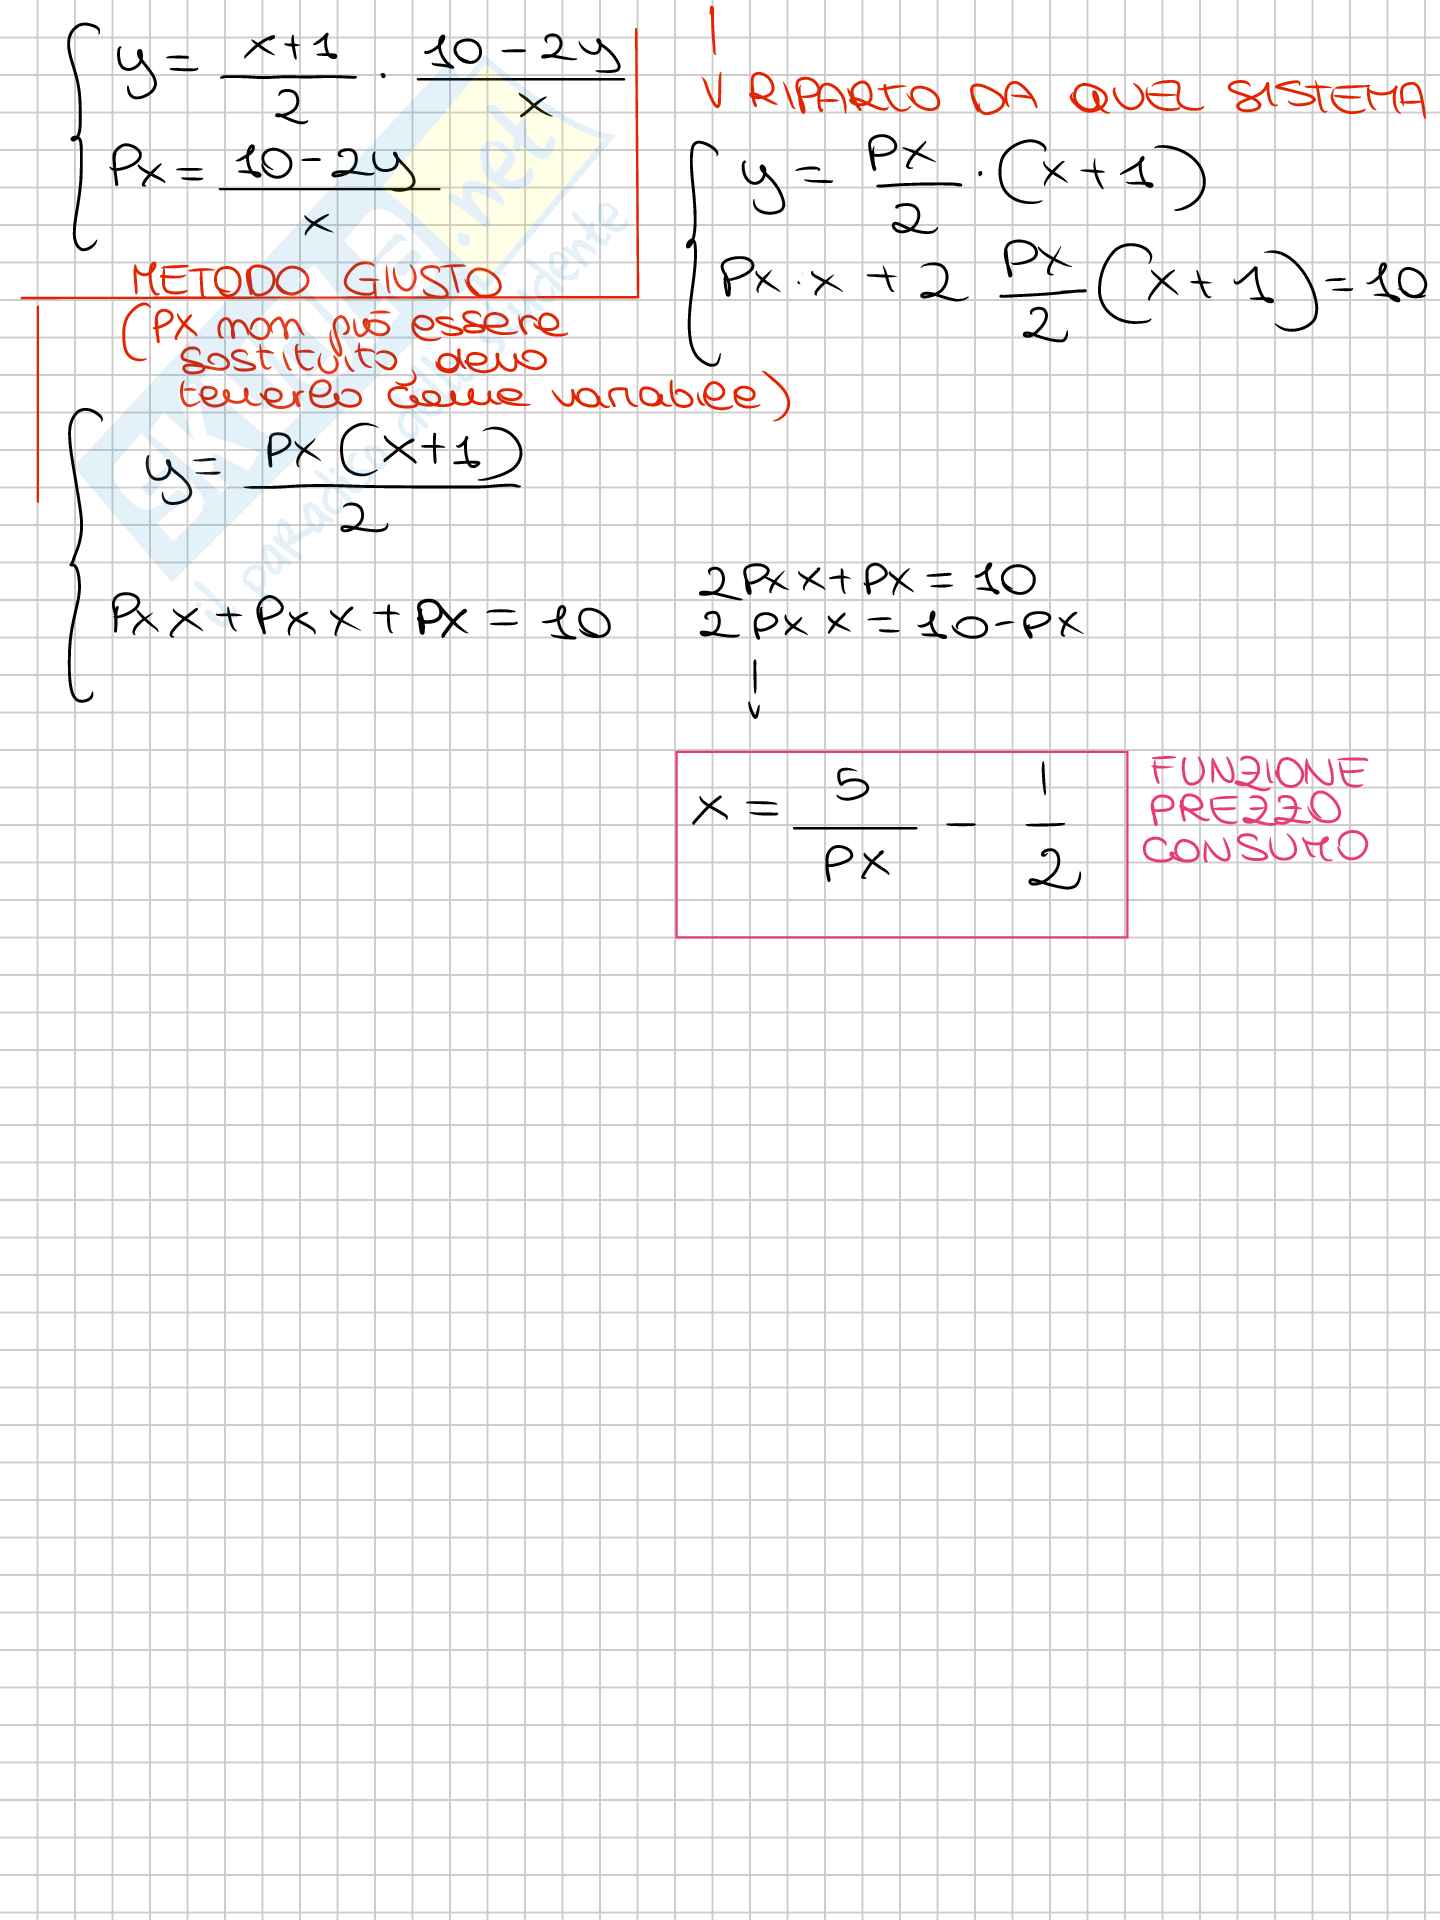 y = x+1/2 · 10-2y/x
Px = 10-2y/x
↓ RIPARTO DA QUEL SISTEMA
y = Px/2 · (x+1)
Px·x + 2 Px/2 (x+1) = 10
METODO GIUSTO
(Px non può essere
sostituito, devo
tenerlo come variabile)
y = Px(x+1)/2
Px x + Px x + Px = 10
2Px x + Px = 10
2Px x = 10-Px
↓
x = 5/Px - 1/2
FUNZIONE
PREZZO
CONSUMO
SKUOLA.net
il paradiso dello studente